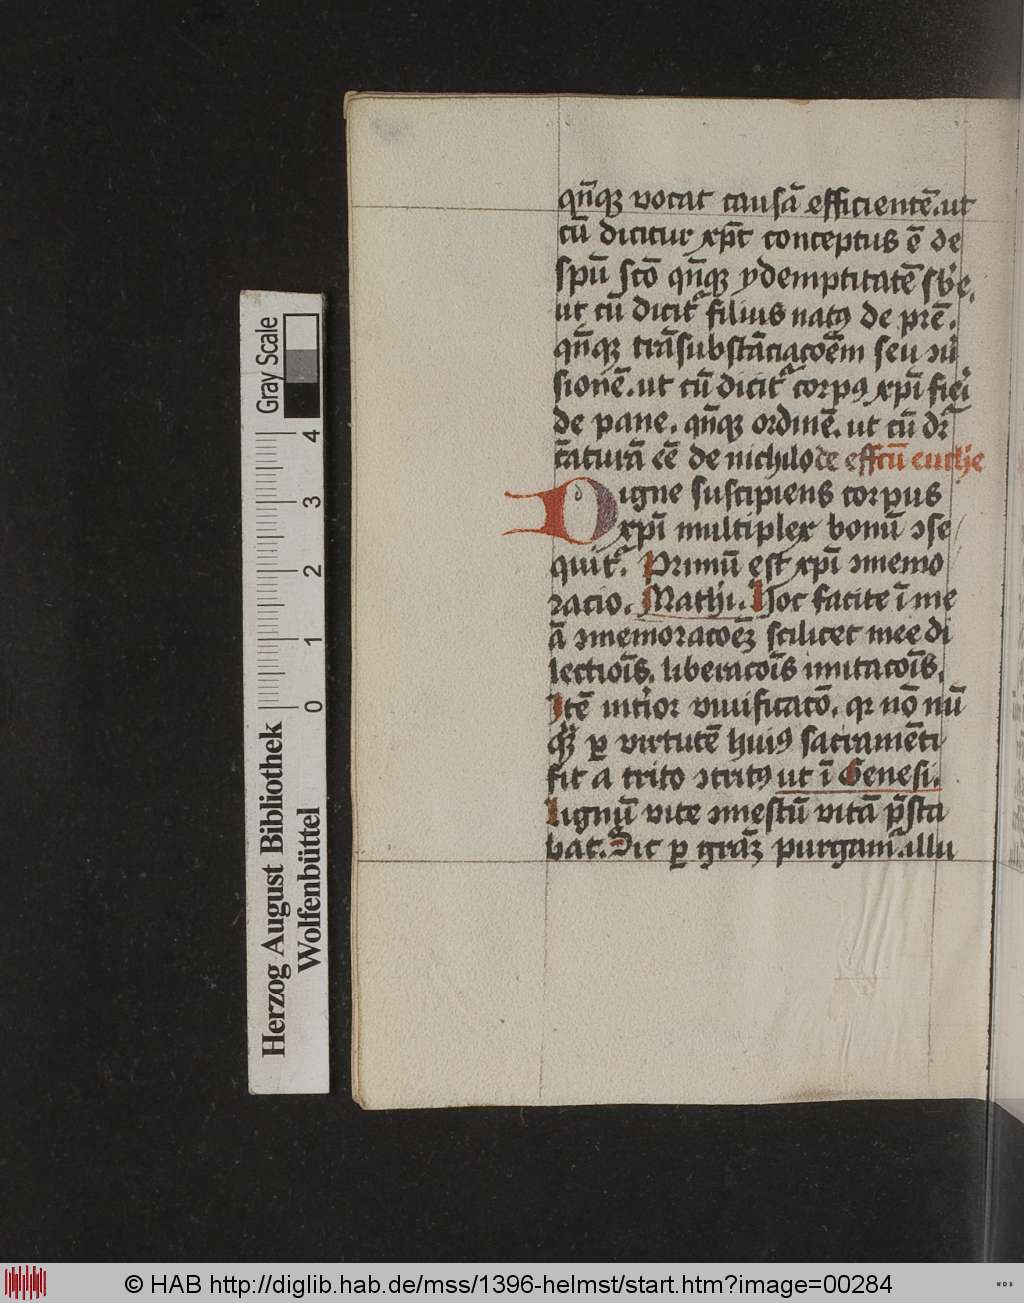 qn̄qꝫ vocat causā efficientē. ut
cū dicitur xp̄c conceptus ē de
spū sctō qn̄qꝫ ydemptitatē
ut cū dicit᷑ filius natꝰ de pr̄e.
qn̄qꝫ trāsubstāciacōem seu
sionē. ut cū dicit᷑ corpꝰ xp̄i fieri
de pane. qn̄qꝫ ordinē. ut cū dr̄
c̄aturā eē de nichilo de effctū
Digne suscipiens corpus
xp̄i multiplex bonū ꝯse
quit᷑. Primū est xp̄i ꝯmemo
racio. Mathi. Hoc facite ī me
ā ꝯmemoracōeꝫ scilicet mee di
lectiōis. liberacōis imitacōis.
Itē vivificatō. qr nō nū
qꝫ ꝑ virtutē huiꝰ sacramēti
fit a trito ꝯtritꝰ ut ī Genesi.
Lignū vite vitā p̄sta
bat. Dit ꝑ grāꝫ purgam̄. illu
Gray Scale
4 3 2 1 0
Herzog August Bibliothek
Wolfenbüttel
© HAB http://diglib.hab.de/mss/1396-helmst/start.htm?image=00284
WDB